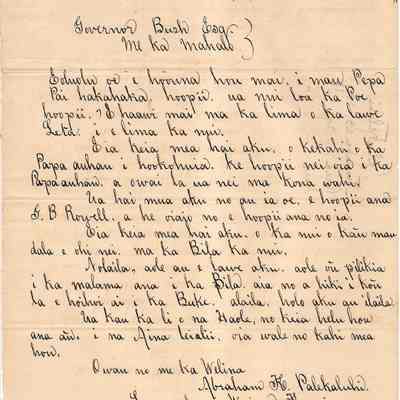 Governor Bush Esq.
Me ka mahalo
E oluolu oe e hoouna hou mai. i mau Pepa
Pai hakahaka. hoopii. ua nui loa ka Poe
hoopii. E haawi mai ma ka lima o ka lawe
Leta. i e lima ka nui.
Eia keia mea hai aku. o kekahi o ka
Papa auhau i hookohuia. Ke hoopii nei oia i ka
Papa auhau. a owai la ua nei ma kona wahi.
Ua hai mua aku no au ia oe. e hoopii ana
G. B Rowell. a he oiaio no. e hoopii ana no ia.
Eia keia mea hai aku. o ka nui o kāu mau
dala e ohi nei. ma ka Bila ka nui.
Nolaila, aole au e lawe aku. aole oū pilikia
i ka malama ana i ka Bila. aia no a hiki i kou
la e hoihoi ai i ka Buke. alaila, holo aku au ilaila.
Ua kau ka li o na Haole, no keia helu hou
ana aū. i na Aina leialii. oia wale no kahi mea
hou.
Owau no me ka Welina
Abraham K. Palekaluhi.